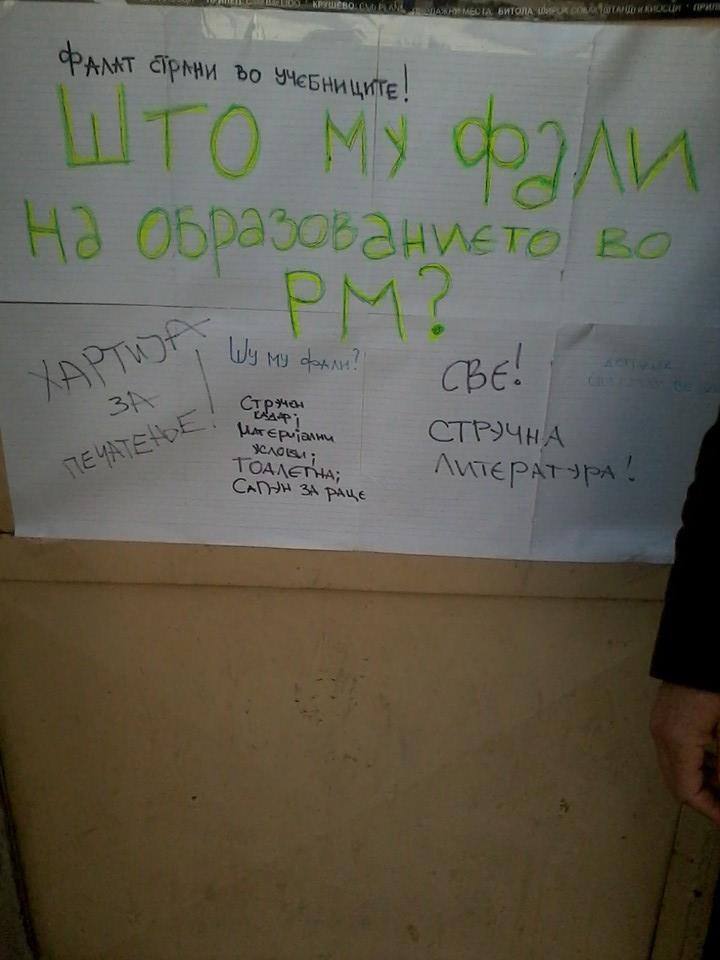 КРУШЕВО: МЕСТА, БИТОЛА,
ФАЛАТ СТРАНИ ВО УЧЕБНИЦИТЕ!
ШТО МУ ФАЛИ
НА ОБРАЗОВАНИЕТО ВО
РМ?
ХАРТИЈА
ЗА
ПЕЧАТЕЊЕ!
ШУ МУ ФАЛИ?
СТРУЧЕН
КАДАР;
МАТЕРИЈАЛНИ
УСЛОВИ;
ТОАЛЕТНА;
САПУН ЗА РАЦЕ
СВЕ!
СТРУЧНА
ЛИТЕРАТУРА!